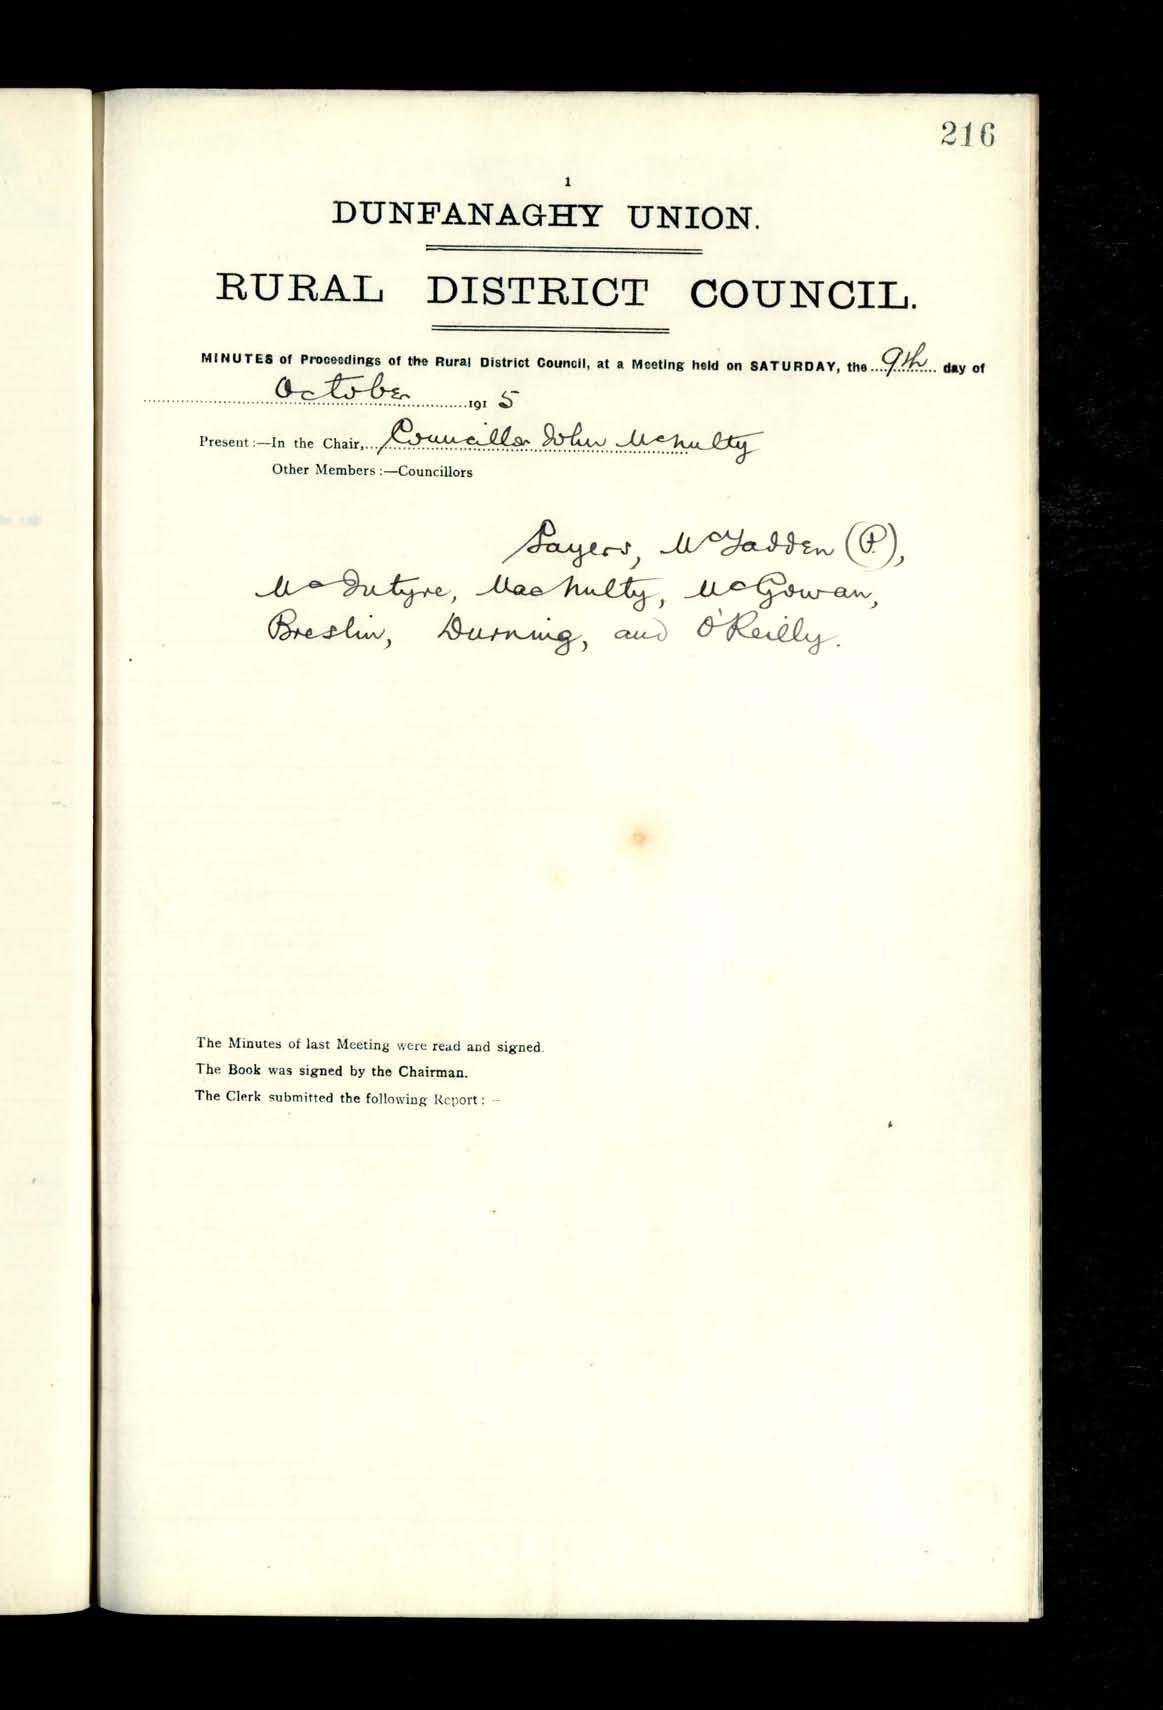 216
1
DUNFANAGHY UNION.
RURAL DISTRICT COUNCIL.
MINUTES of Proceedings of the Rural District Council, at a Meeting held on SATURDAY, the 9th day of
October 1915
Present :—In the Chair, Councillor John McNulty
Other Members :—Councillors
Sayers, McFadden (P.),
McIntyre, MacNulty, McGowan,
Breslin, Durning, and O'Reilly.
The Minutes of last Meeting were read and signed.
The Book was signed by the Chairman.
The Clerk submitted the following Report : —